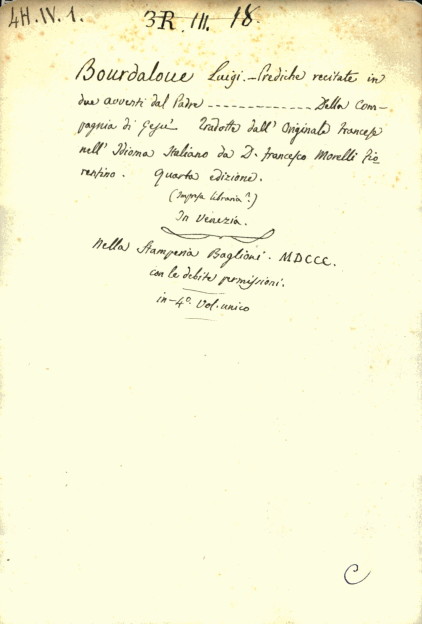 4H.IV.1.
3R.III. 18.
Bourdaloue Luigi. - Prediche recitate in
due avventi dal Padre ------------- Della Com-
pagnia di Gesù Tradotte dall' Originale Francese
nell' Idioma Italiano da D. Francesco Morelli Fio-
rentino. Quarta edizione.
(Impresa libraria.)
In Venezia.
Nella Stamperia Baglioni. MDCCC.
con le debite permissioni.
in-4º. Vol. unico
C